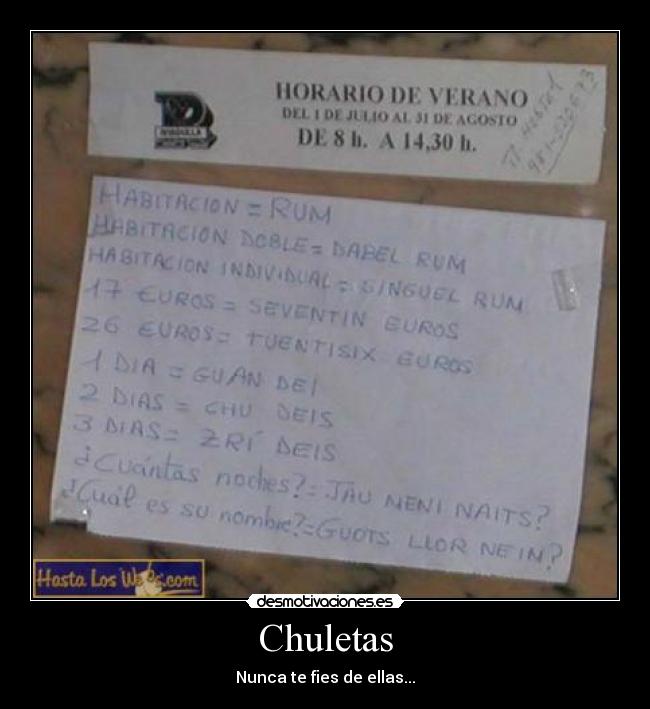 HORARIO DE VERANO
DEL 1 DE JULIO AL 31 DE AGOSTO
DE 8 h. A 14,30 h.
HABITACION = RUM
HABITACION DOBLE = DABEL RUM
HABITACION INDIVIDUAL = SINGUEL RUM
17 EUROS = SEVENTIN EUROS
26 EUROS = TUENTISIX EUROS
1 DIA = GUAN DEI
2 DIAS = CHU DEIS
3 DIAS = ZRÍ DEIS
¿Cuántas noches? = JAU MENI NAITS?
¿Cuál es su nombre? = GUOTS LLOR NEIM?
Hasta Los
desmotivaciones.es
Chuletas
Nunca te fies de ellas...